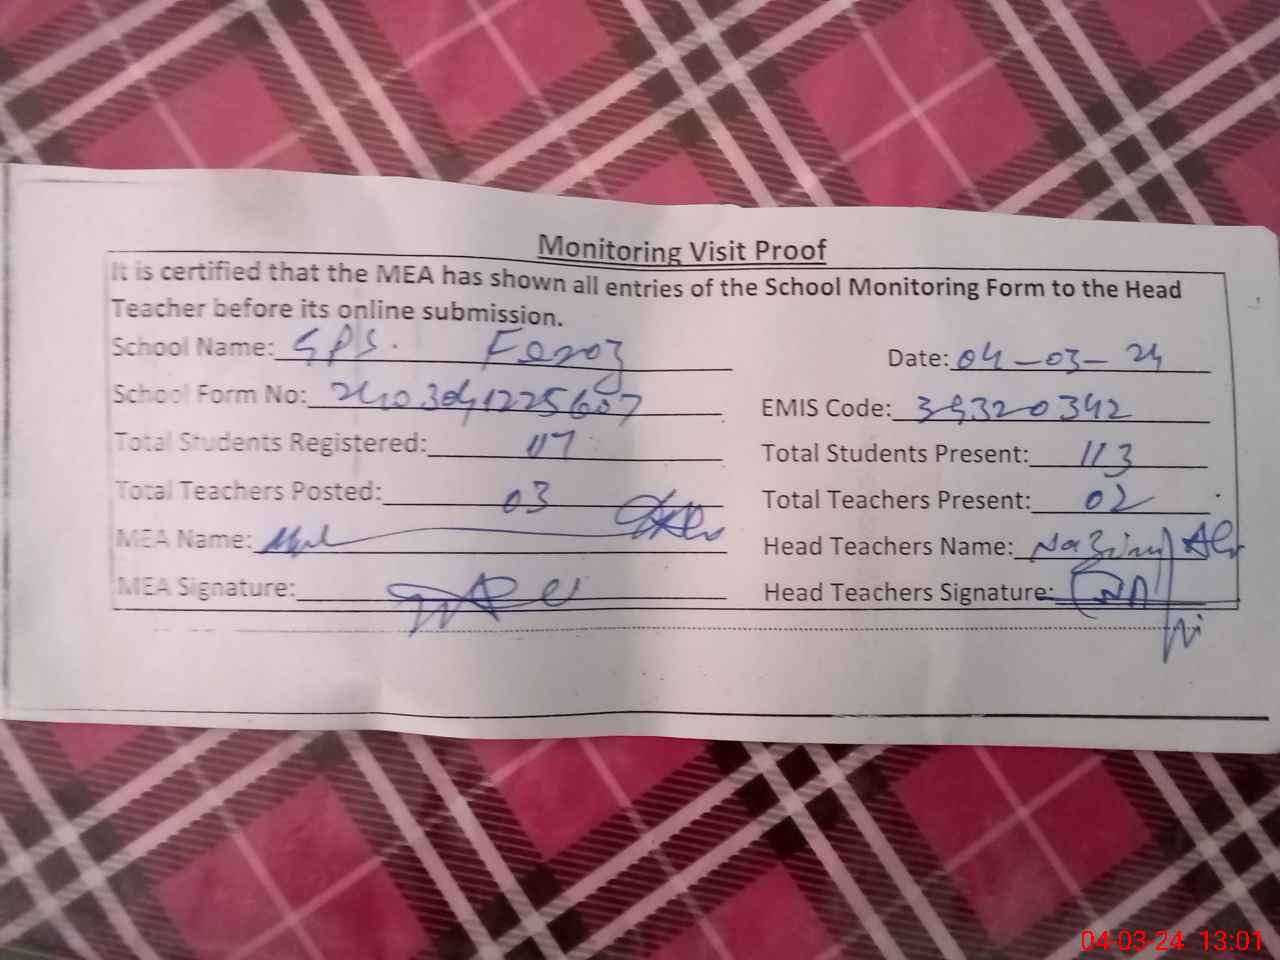 Monitoring Visit Proof
It is certified that the MEA has shown all entries of the School Monitoring Form to the Head
Teacher before its online submission.
School Name: GPS. Feroz Date: 04-03-24
School Form No: 2403041225607 EMIS Code: 39320342
Total Students Registered: 117 Total Students Present: 113
Total Teachers Posted: 03 Total Teachers Present: 02
MEA Name: Head Teachers Name:
MEA Signature: Head Teachers Signature:
04-03-24 13:01